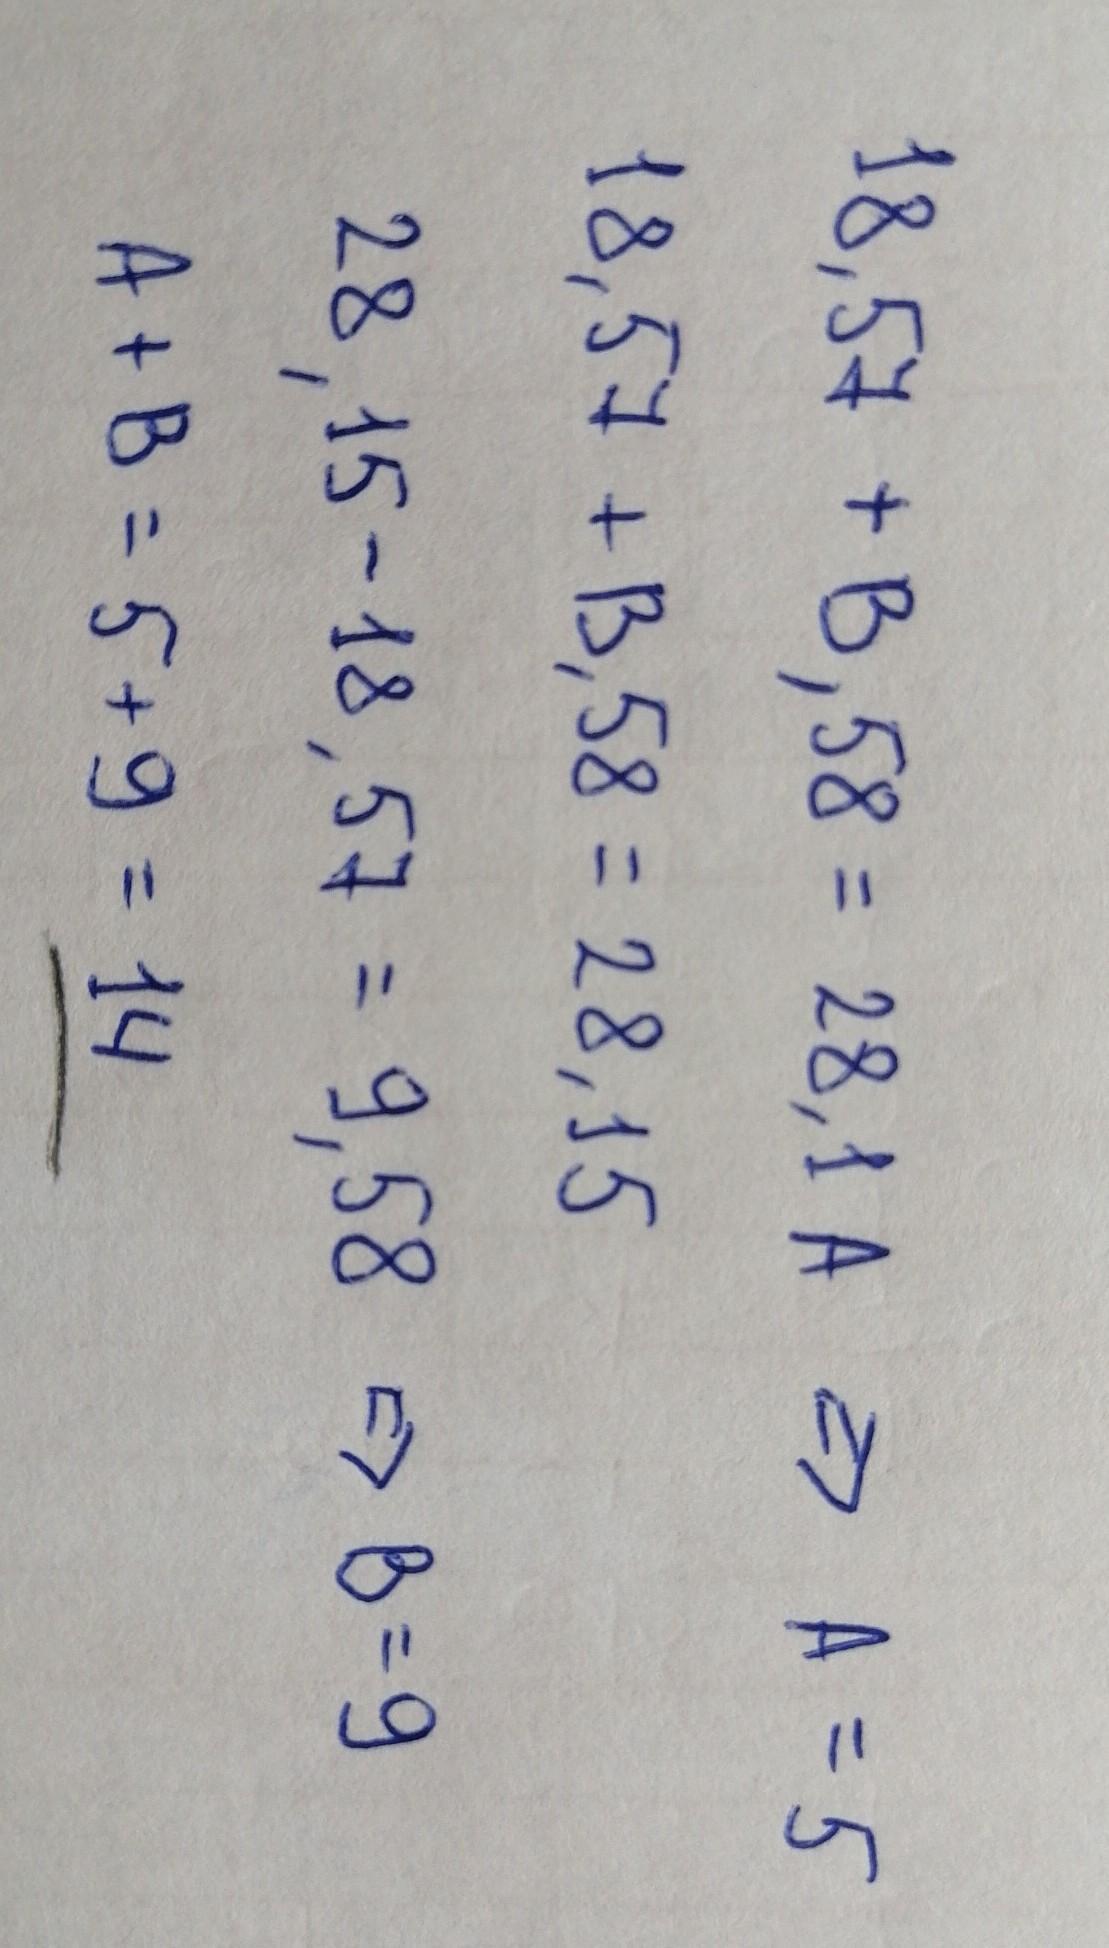 18,57 + B,58 = 28,1A ⇒ A = 5
18,57 + B,58 = 28,15
28,15 - 18,57 = 9,58 ⇒ B = 9
A + B = 5 + 9 = 14